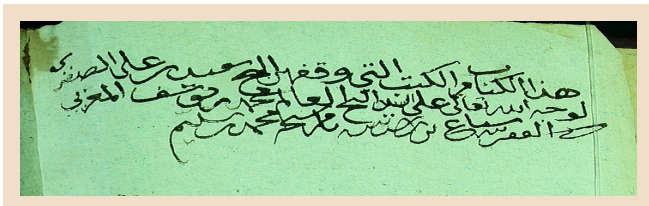 هذا الكتاب من الكتب التي وقفهن الحج سعيد بن علي الصفري
لوجه الله تعالى على الشيخ العالم محمد بن يوسف المغربي
الفقير محمد بن سليم